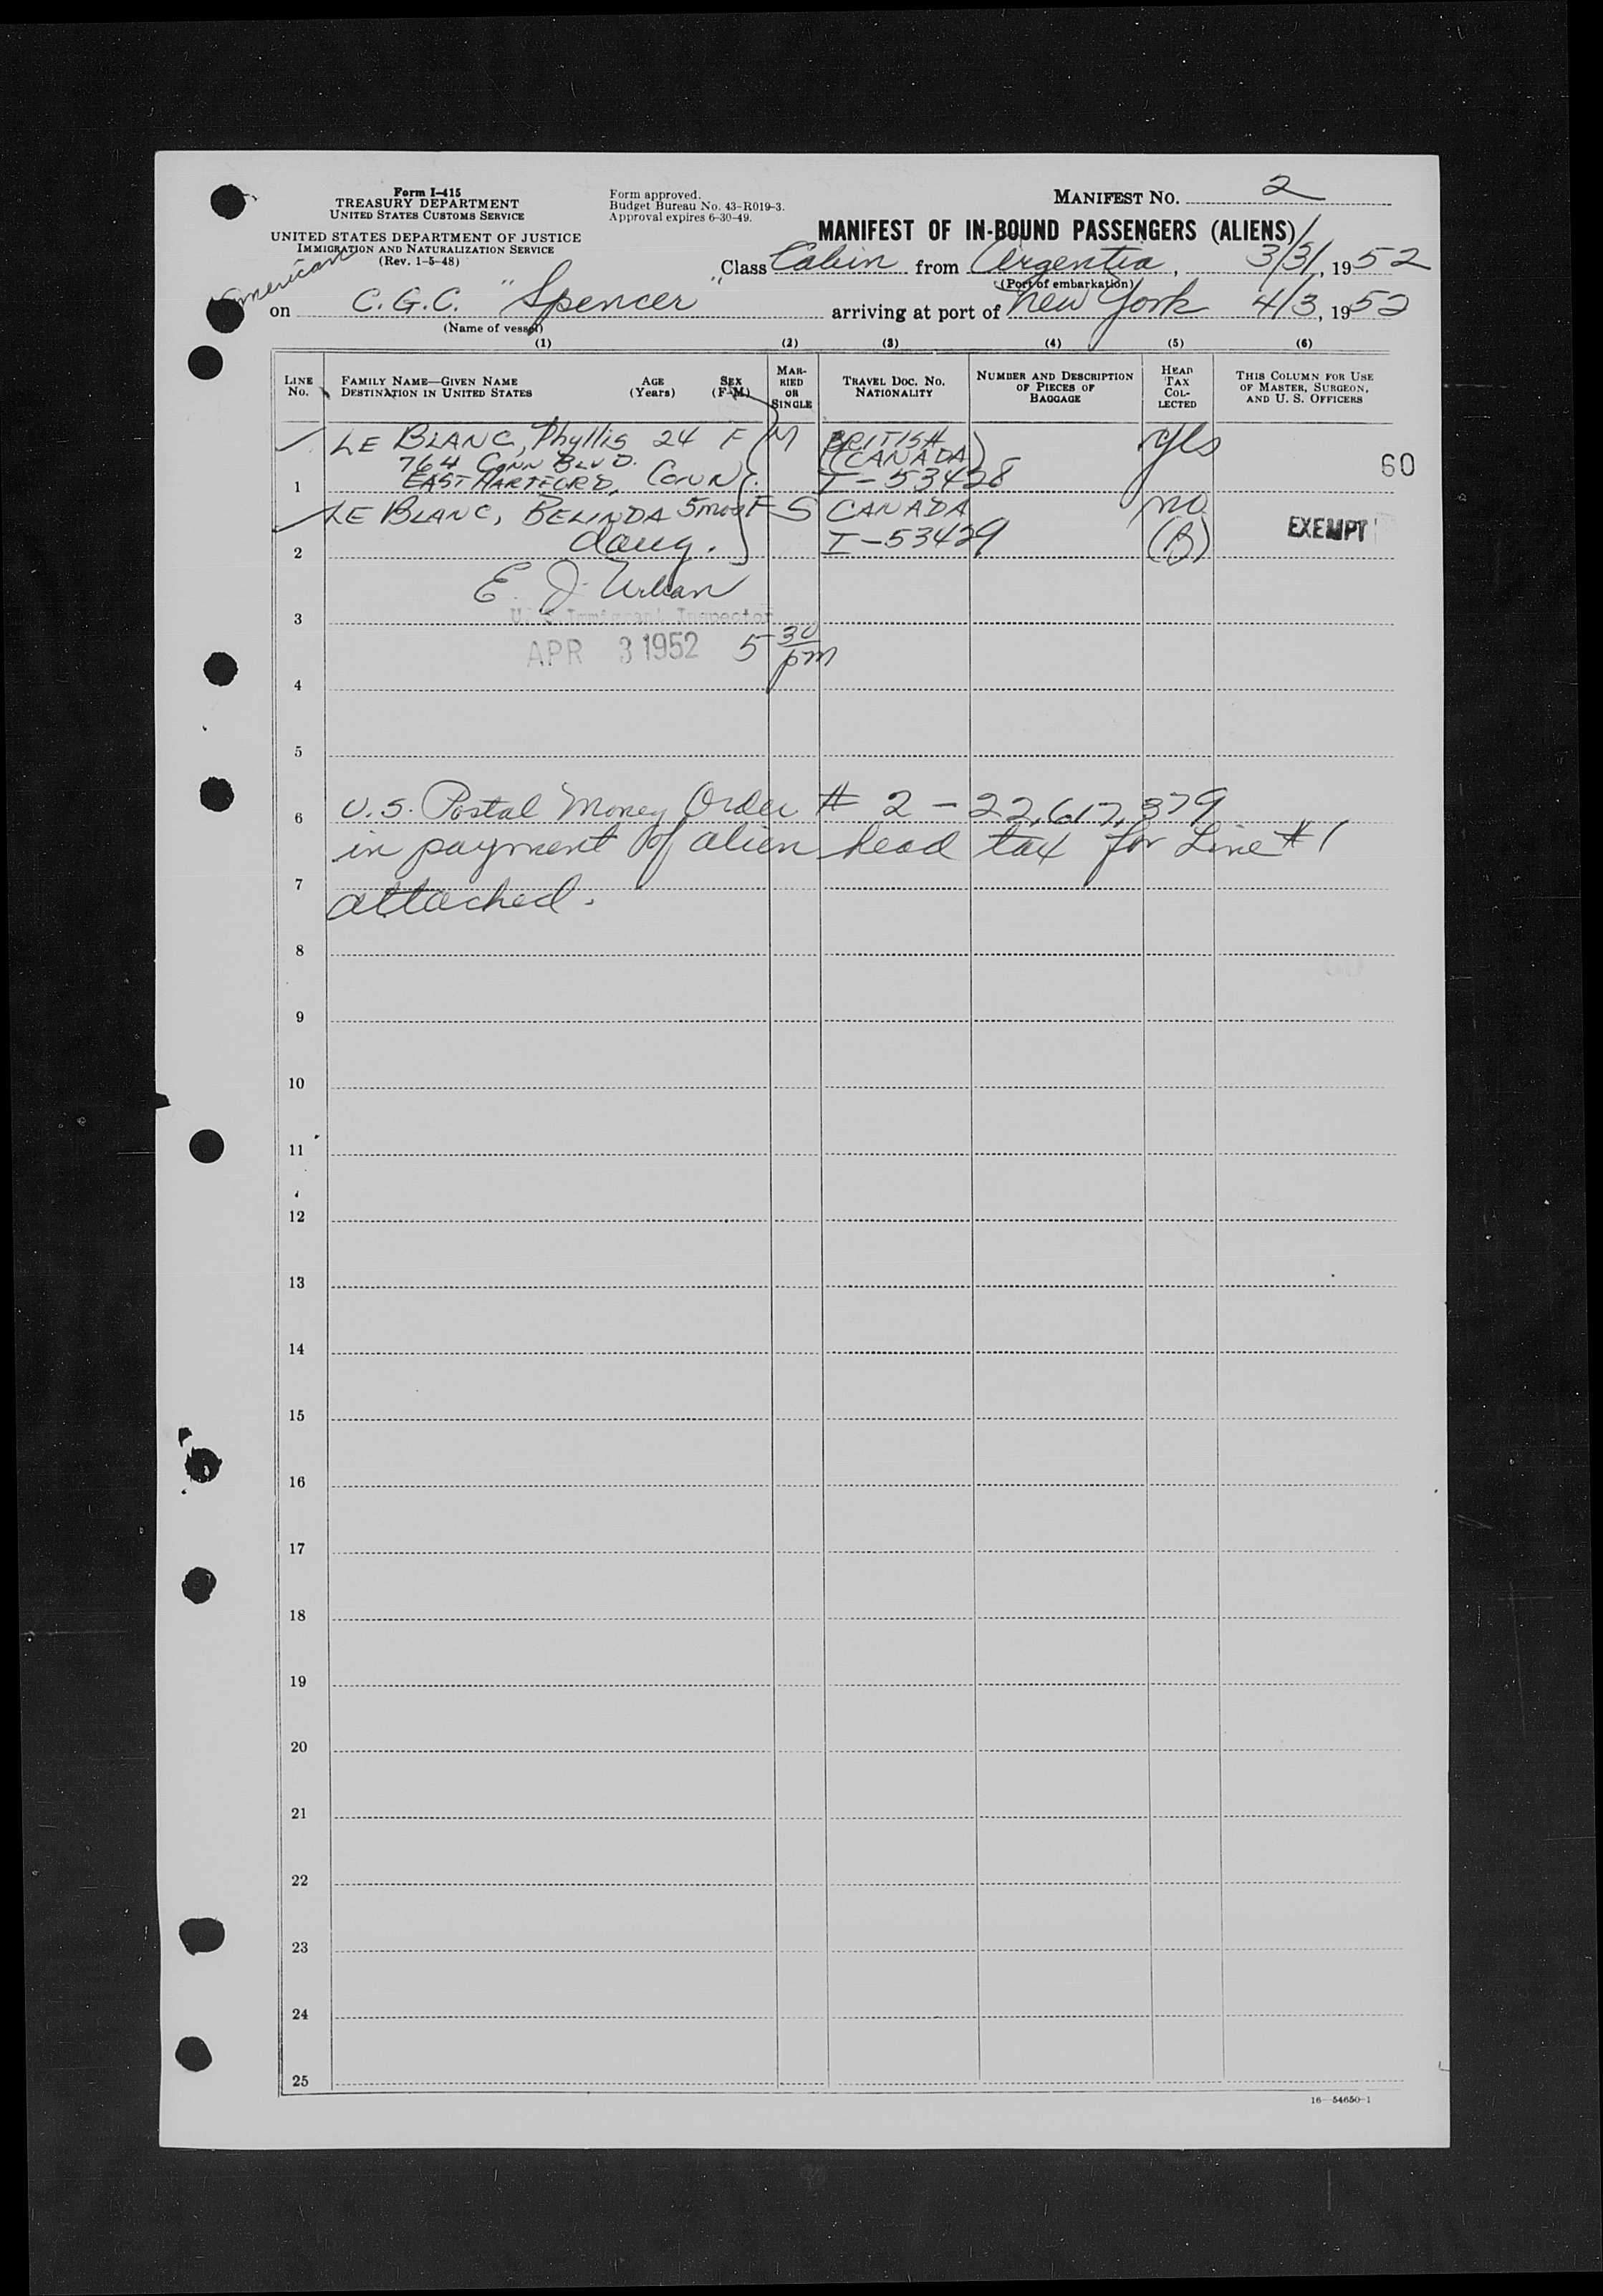 Form I-415
TREASURY DEPARTMENT
UNITED STATES CUSTOMS SERVICE
UNITED STATES DEPARTMENT OF JUSTICE
IMMIGRATION AND NATURALIZATION SERVICE
(Rev. 1-5-48)
Form approved.
Budget Bureau No. 43-R019-3.
Approval expires 6-30-49.
MANIFEST NO. 2
MANIFEST OF IN-BOUND PASSENGERS (ALIENS)
Class Cabin from Argentia, 3/31, 1952
(Port of embarkation)
American
on C.G.C. "Spencer" arriving at port of New York 4/3, 1952
(Name of vessel)
(1) (2) (3) (4) (5) (6)
LINE No. FAMILY NAME—GIVEN NAME DESTINATION IN UNITED STATES AGE (Years) SEX (F-M) MARRIED OR SINGLE TRAVEL DOC. NO. NATIONALITY NUMBER AND DESCRIPTION OF PIECES OF BAGGAGE HEAD TAX COLLECTED THIS COLUMN FOR USE OF MASTER, SURGEON, AND U. S. OFFICERS
LE BLANC, Phyllis 24 F M BRITISH yes
764 CONN BLVD. (CANADA) 60
1 EAST HARTFORD, CONN. I-53428
LE BLANC, BELINDA 5mos F S CANADA no EXEMPT
2 daug. I-53429 (B)
E. J. Urban
3 U. S. Immigrant Inspector
APR 3 1952 5 30 pm
4
5
6 U.S. Postal Money Order # 2-22,617,379
in payment of alien head tax for Line #1
7
attached.
8
9
10
11
12
13
14
15
16
17
18
19
20
21
22
23
24
25
16—54650-1